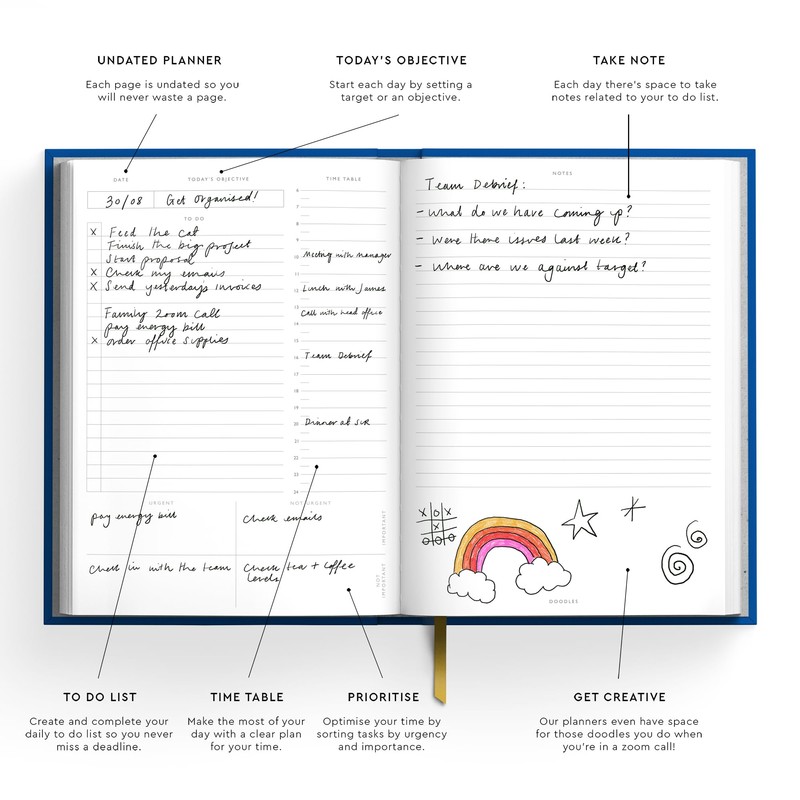 UNDATED PLANNER
Each page is undated so you
will never waste a page.
TODAY'S OBJECTIVE
Start each day by setting a
target or an objective.
TAKE NOTE
Each day there's space to take
notes related to your to do list.
DATE
TODAY'S OBJECTIVE
30/08
Get Organised!
TO DO
X Feed the cat
Finish the big project
Start proposal
X Check my emails
X Send yesterday's invoices
Family Zoom Call
pay energy bill
X order office supplies
TIME TABLE
6
7
8
9
10
Meeting with manager
11
12
Lunch with James
13
Call with head office
14
15
16
Team Debrief
17
18
19
20
Dinner at
21
22
23
24
URGENT
NOT URGENT
pay energy bill
Check emails
IMPORTANT
Check in with the team
Check tea + coffee
levels
NOT
IMPORTANT
NOTES
Team Debrief:
- what do we have coming up?
- were there issues last week?
- where are we against target?
X O X
X
O O O
DOODLES
TO DO LIST
Create and complete your
daily to do list so you never
miss a deadline.
TIME TABLE
Make the most of your
day with a clear plan
for your time.
PRIORITISE
Optimise your time by
sorting tasks by urgency
and importance.
GET CREATIVE
Our planners even have space
for those doodles you do when
you're in a zoom call!